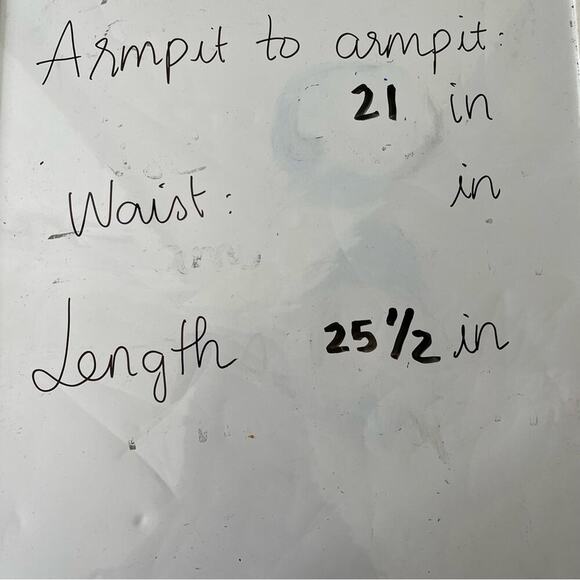 Armpit to armpit:
21 in
Waist: in
Length 25 1/2 in